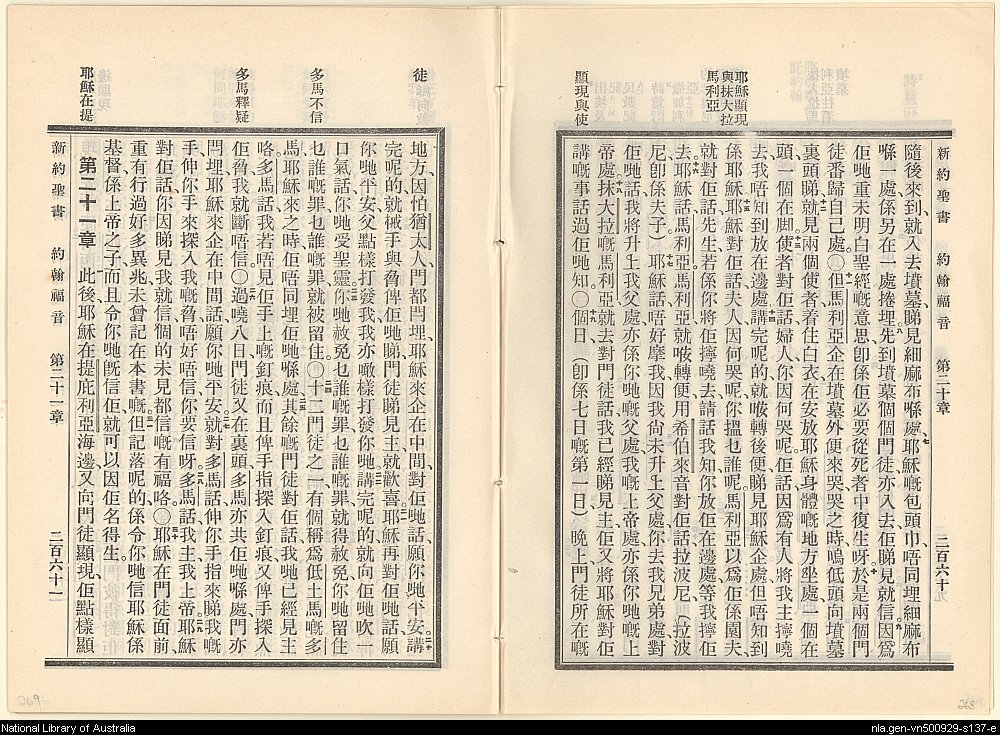 新約聖書 約翰福音 第二十章 二百六十九
耶穌顯現與抹大拉馬利亞
顯現與使
隨後來到就入去墳墓睇見細麻布喺處耶穌嘅包頭巾唔同埋細麻布
喺一處係另在一處捲埋先到墳墓個個門徒亦入去佢睇見就信因爲
佢哋重未明白聖經嘅意思卽係佢必要從死者中復生呀於是兩個門
徒番歸自己處〇但馬利亞企在墳墓外便來哭哭之時嗚低頭向墳墓
裏頭睇就見兩個使者着住白衣在安放耶穌身體嘅地方坐處一個在
頭一個在脚使者對佢話婦人你因何哭呢佢話因爲有人將我主擰嘵
去我唔知到放在邊處講完呢的就𨂾轉後便睇見耶穌企處但唔知到
係耶穌耶穌對佢話夫人因何哭呢你搵乜誰呢馬利亞以爲佢係園夫
就對佢話先生若係你將佢擰嘵去請話我知你放佢在邊處等我擰佢
去耶穌話馬利亞馬利亞就𨂾轉便用希伯來音對佢話拉波尼(拉波
尼卽係夫子)耶穌話唔好摩我因我尙未升上父處你去我兄弟處對
佢哋話我將升上我父處亦係你哋嘅父處我嘅上帝處亦係你哋嘅上
帝處抹大拉嘅馬利亞就去對門徒話我已經睇見主佢又將耶穌對佢
講嘅事話過佢哋知〇個日(卽係七日嘅第一日)晚上門徒所在嘅
268
徒
多馬不信
多馬釋疑
耶穌在提
地方因怕猶太人門都閂埋耶穌來企在中間對佢哋話願你哋平安講
完呢的就械手與脅俾佢哋睇門徒睇見主就歡喜耶穌再對佢哋話願
你哋平安父點樣打發我我亦噉樣打發你哋講完呢的就向佢哋吹一
口氣話你哋受聖靈你哋赦免乜誰嘅罪乜誰嘅罪就得赦免你哋留住
乜誰嘅罪乜誰嘅罪就被留住〇十二門徒之一有個稱爲低土馬嘅多
馬耶穌來之時佢唔同埋佢哋喺處其餘嘅門徒對佢話我哋已經見主
咯多馬話我若唔見佢手上嘅釘痕而且俾手指探入釘痕又俾手探入
佢脅我就斷唔信〇過嘵八日門徒又在裏頭多馬亦共佢哋喺處門亦
閂埋耶穌來企在中間話願你哋平安就對多馬話伸你手指來睇我嘅
手伸你手來探入我嘅脅唔好唔信你要信呀多馬話我主我上帝耶穌
對佢話你因睇見我就信個的未見都信嘅有福咯〇耶穌在門徒面前
重有行過好多異兆未曾記在本書嘅但記落呢的係令你哋信耶穌係
基督係上帝之子而且令你哋旣信佢就可以因佢名得生
第二十一章 此後耶穌在提庇利亞海邊又向門徒顯現佢點樣顯
新約聖書 約翰福音 第二十一章 二百六十二
269
National Library of Australia
nla.gen-vn500929-s137-e